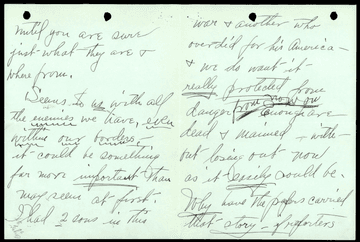 until you are sure
just what they are &
where from.
Seems to us with all
the enemies we have, even
within our borders,
it could be something
far more important than
may seem at first.
I had 2 sons in this
war & another who
overdid for his America -
& we do want it
really protected from
danger from now on
Enough are
dead & maimed - with-
out losing out now
as it easily could be.
Why have the papers carried
that story - of reporters